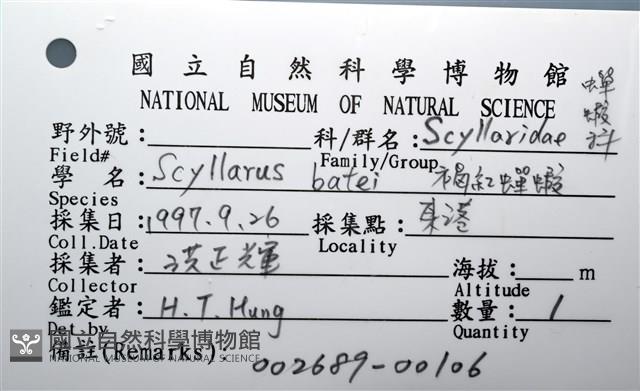 國立自然科學博物館
NATIONAL MUSEUM OF NATURAL SCIENCE
野外號: 科/群名: Scyllaridae 蟬蝦科
Field# Family/Group
學 名: Scyllarus batei 褐紅蟬蝦
Species
採集日: 1997.9.26 採集點: 東港
Coll.Date Locality
採集者: 洪正輝 海拔: m
Collector Altitude
鑑定者: H.T.Hung 數量: 1
Det.by Quantity
國立自然科學博物館
NATIONAL MUSEUM OF NATURAL SCIENCE
備註(Remarks): 002689-00106